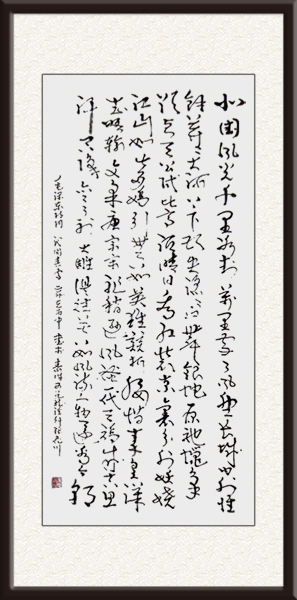 北国风光千里冰封万里雪飘望长城内外惟
馀莽莽大河上下顿失滔滔山舞银蛇原驰蜡象
欲与天公试比高须晴日看红装素裹分外妖娆
江山如此多娇引无数英雄竞折腰惜秦皇汉
武略输文采唐宗宋祖稍逊风骚一代天骄成吉思
汗只识弯弓射大雕俱往矣数风流人物还看今朝
毛泽东诗词沁园春雪